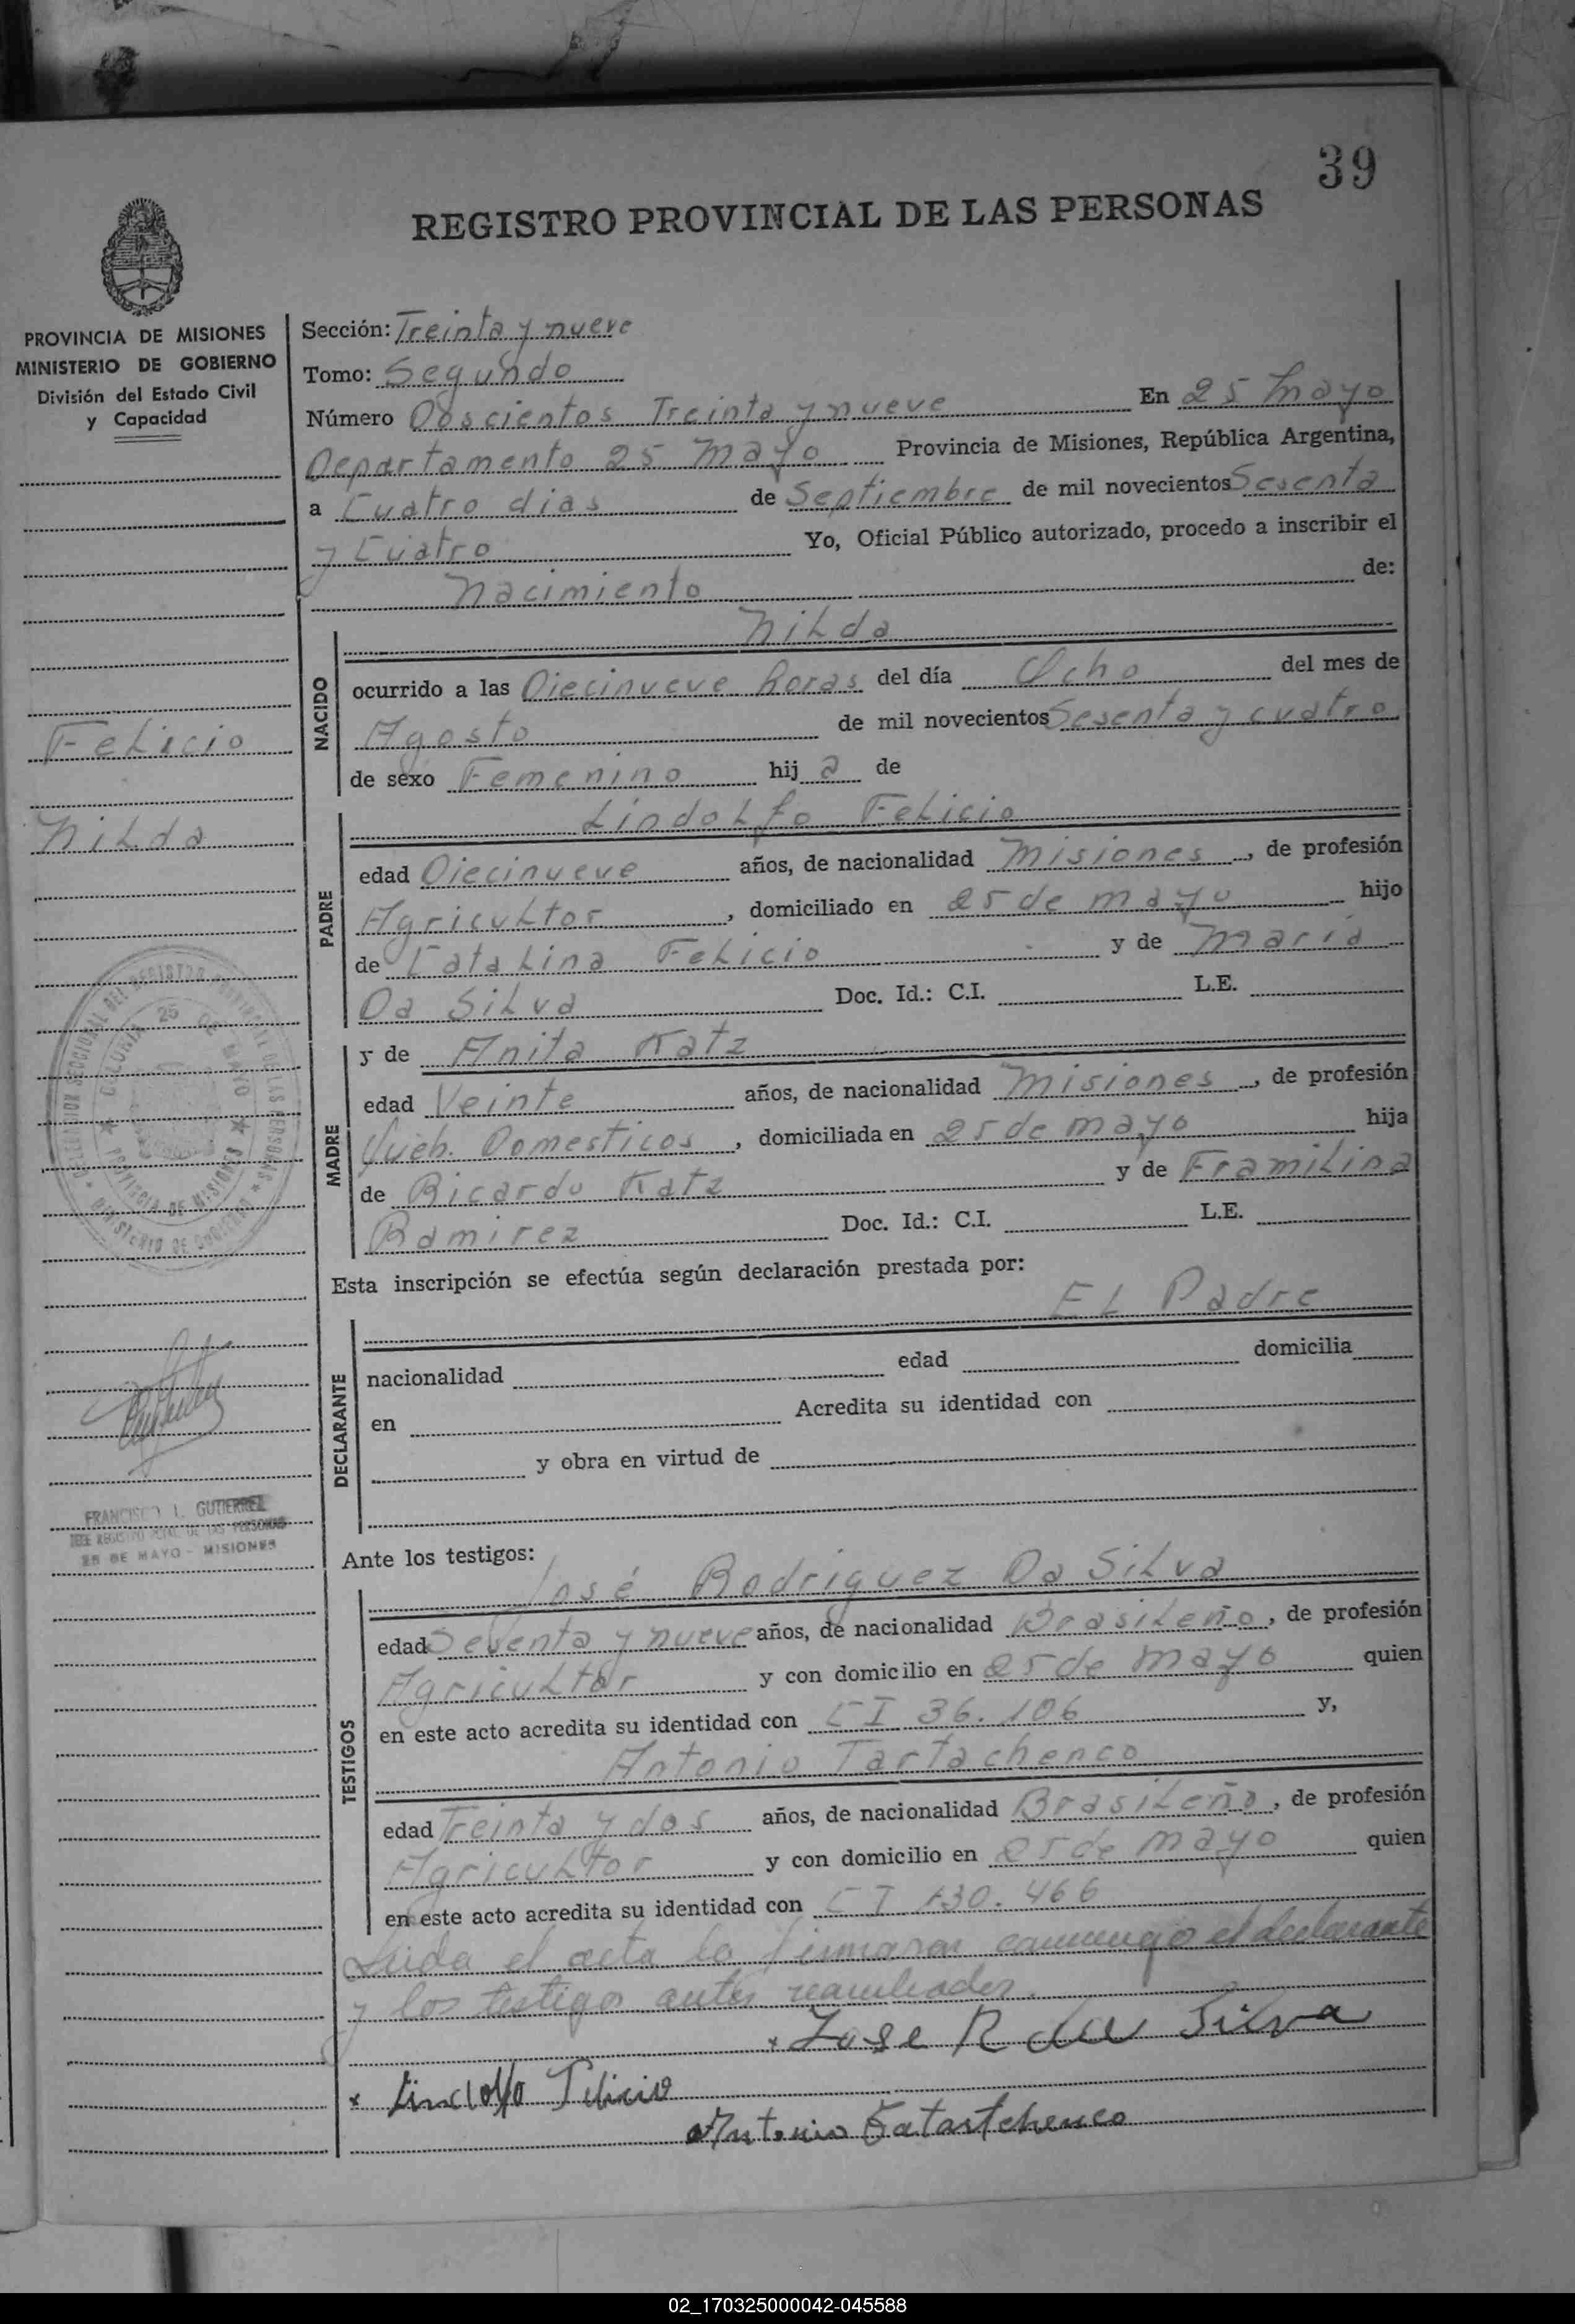 39
REGISTRO PROVINCIAL DE LAS PERSONAS
PROVINCIA DE MISIONES
MINISTERIO DE GOBIERNO
División del Estado Civil
y Capacidad
Felicio
Nilda
COLONIA 25 DE MAYO
PROVINCIA DE MISIONES
FRANCISCO L. GUTIERREZ
JEFE REGISTRO PCIAL DE LAS PERSONAS
25 DE MAYO - MISIONES
Sección: Treinta y nueve
Tomo: Segundo
Número Doscientos Treinta y nueve En 25 Mayo
Departamento 25 Mayo Provincia de Misiones, República Argentina,
a Cuatro dias de Septiembre de mil novecientos Sesenta
y Cuatro Yo, Oficial Público autorizado, procedo a inscribir el
Nacimiento de:
NACIDO
Nilda
ocurrido a las Diecinueve horas del día Ocho del mes de
Agosto de mil novecientos Sesenta y cuatro
de sexo Femenino hij a de
PADRE
Lindolfo Felicio
edad Diecinueve años, de nacionalidad Misiones, de profesión
Agricultor, domiciliado en 25 de mayo hijo
de Catalina Felicio y de Maria
Da Silva Doc. Id.: C.I. L.E.
MADRE
y de Anita Katz
edad Veinte años, de nacionalidad Misiones, de profesión
Queh. Domesticos, domiciliada en 25 de mayo hija
de Ricardo Katz y de Framilina
Ramirez Doc. Id.: C.I. L.E.
Esta inscripción se efectúa según declaración prestada por:
DECLARANTE
El Padre
nacionalidad edad domicilia
en Acredita su identidad con
y obra en virtud de
Ante los testigos:
TESTIGOS
José Rodriguez Da Silva
edad y nueve años, de nacionalidad Brasileño, de profesión
Agricultor y con domicilio en 25 de mayo quien
en este acto acredita su identidad con CI 36.106 y,
Antonio Tartachenco
edad Treinta y dos años, de nacionalidad Brasileño, de profesión
Agricultor y con domicilio en 25 de mayo quien
en este acto acredita su identidad con CI 130.466
Leida el acta la firmaron conmigo el declarante
y los testigos antes
x Jose R da Silva
x Lindolfo Felicio
Antonio
02_170325000042-045588